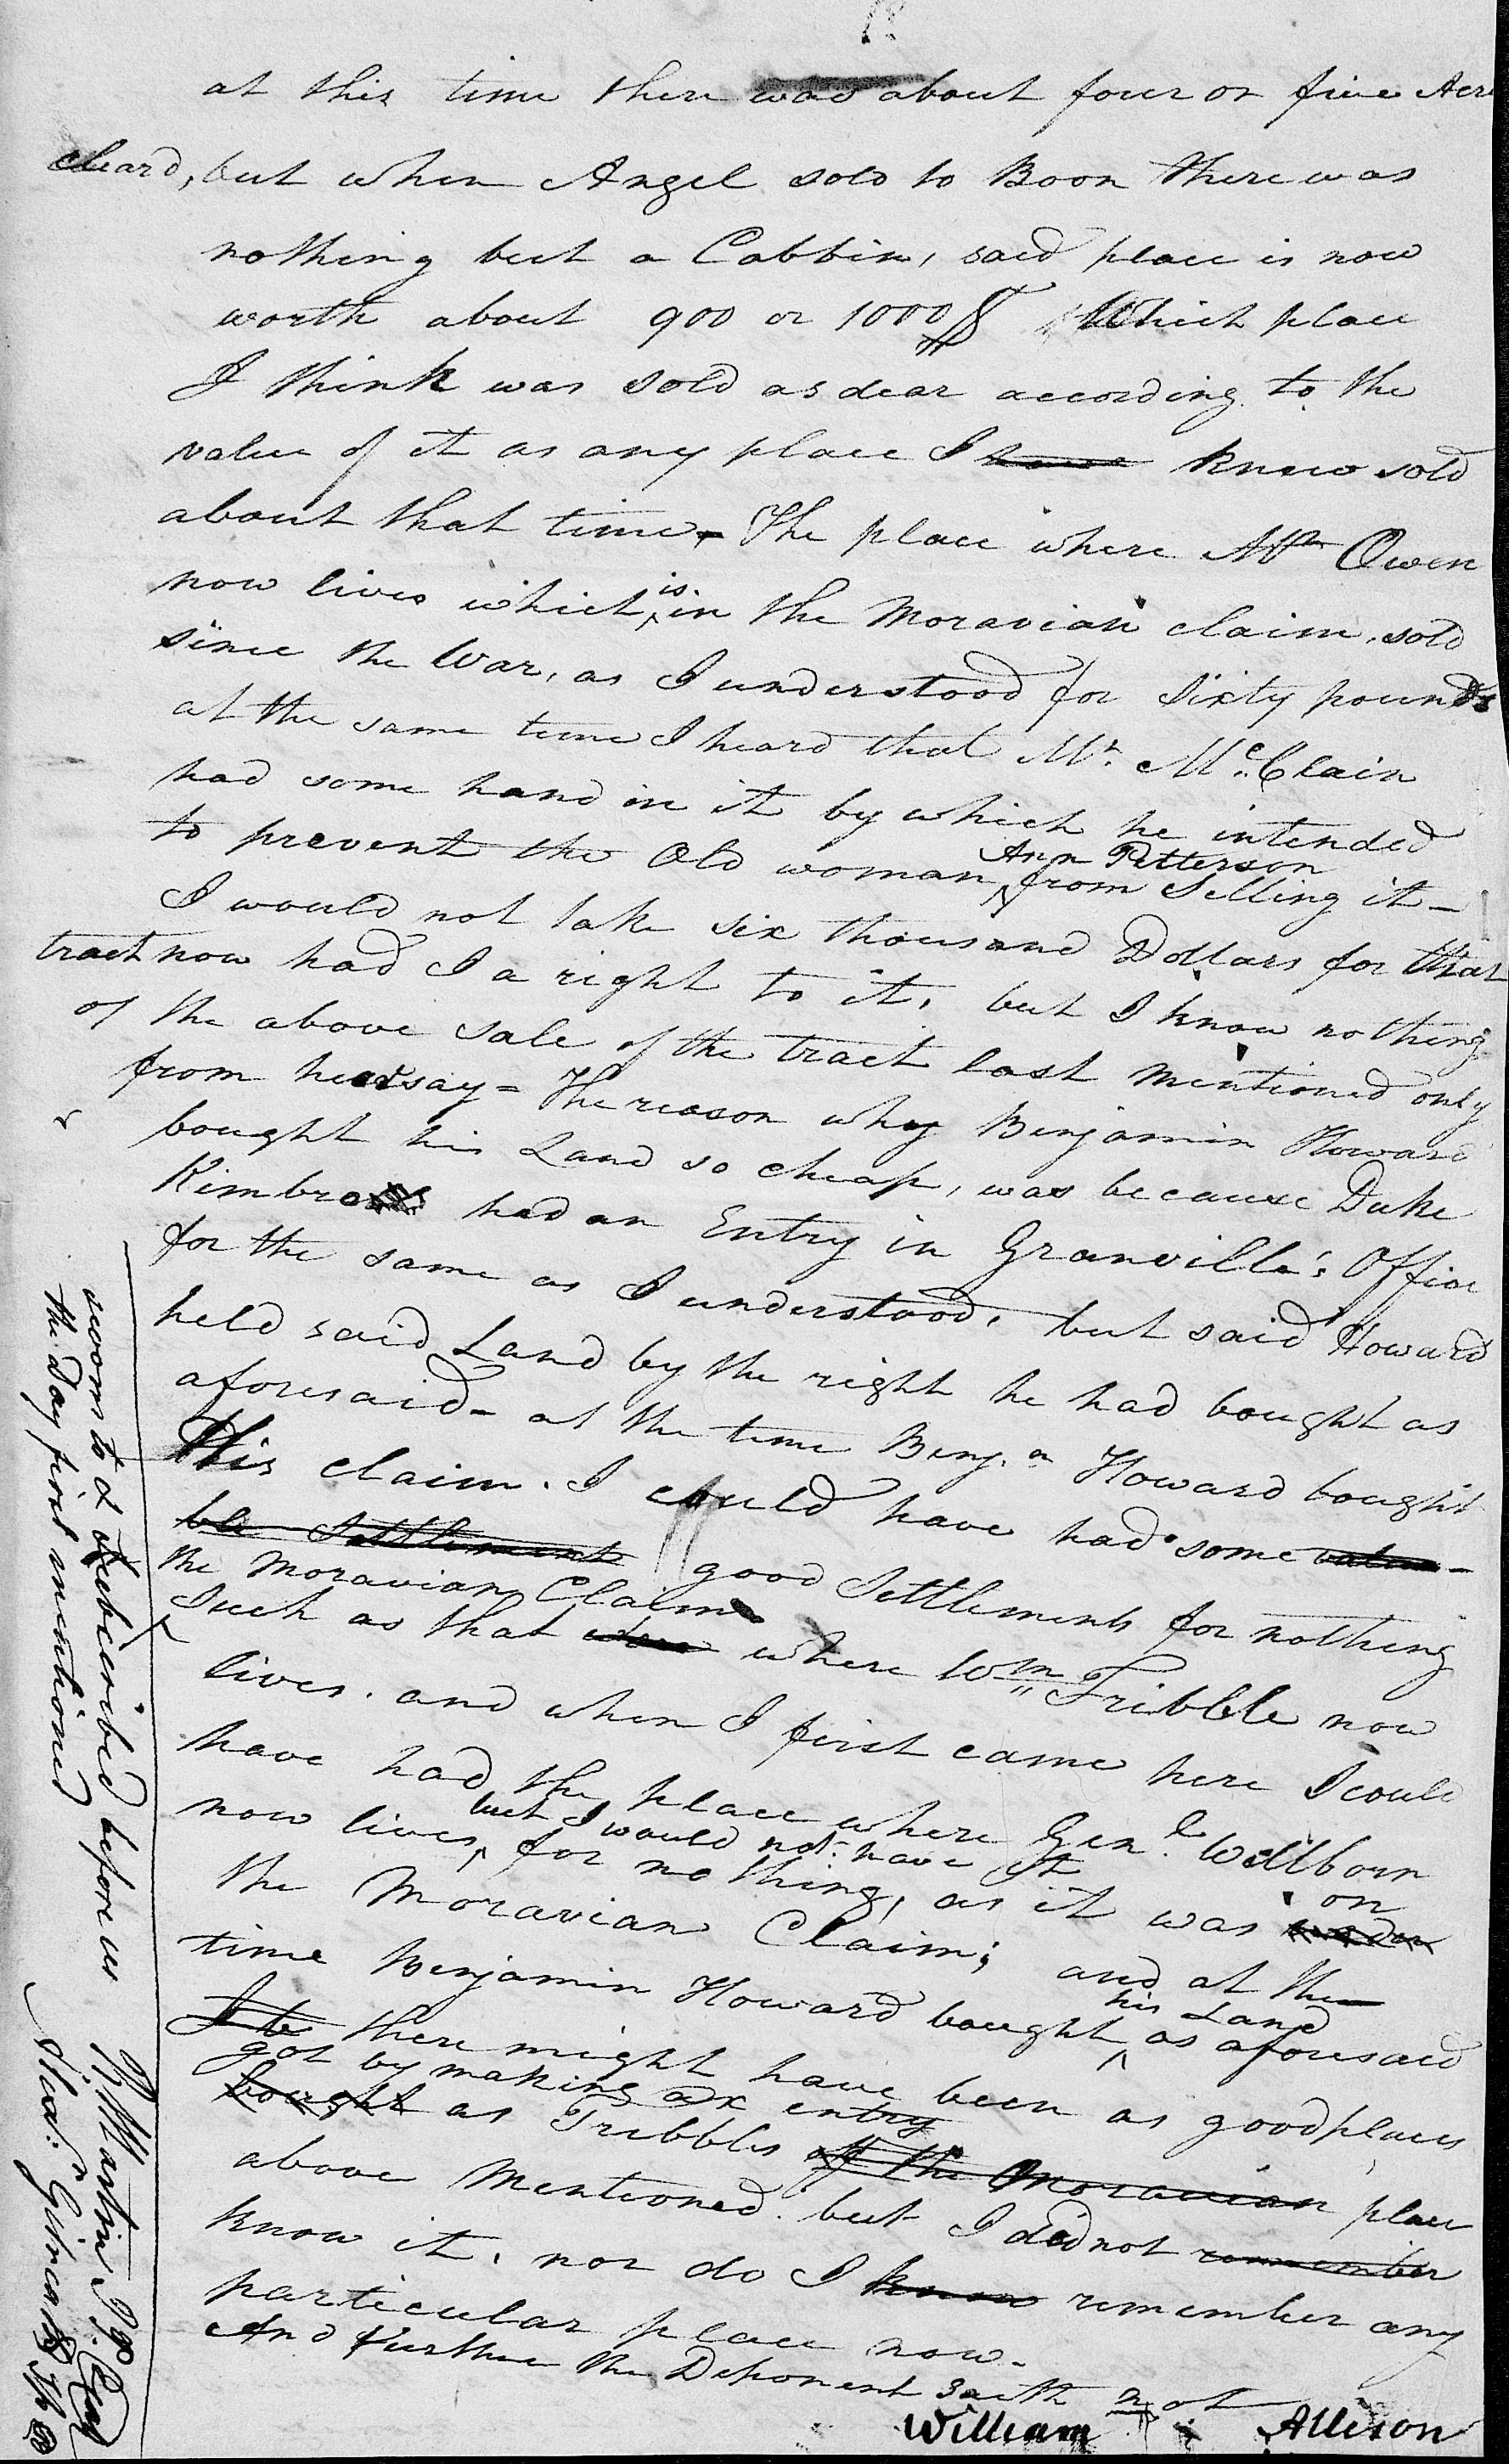 at this time there was about four or five Acre
cleard, but when Angel sold to Boon there was
nothing but a Cabbin, said place is now
worth about 900 or 1000 $ Which place
I think was sold as dear according to the
value of it as any place I have knew sold
about that time - The place where Mr Owen
now lives which is in the Moravian claim, sold
since the War, as I understood for Sixty pounds
at the same time I heard that Mr. McClain
had some hand in it by which he intended
to prevent the Old woman Ann Petterson from Selling it -
I would not take six thousand Dollars for that
tract now had I a right to it, but I know nothing
of the above sale of the tract last mentioned only
from hearsay - The reason why Benjamin Howard
bought his Land so cheap, was because Duke
Kimbro had an Entry in Granville's Office
for the same as I understood, but said Howard
held said Land by the right he had bought as
aforesaid - at the time Benj.n Howard bought
this claim. I could have had some valua-
ble Settlements good Settlements for nothing
the Moravian Claim
Such as that where Wm Tribble now
lives. and when I first came here I could
have had the place where Genl. Wellborn
now lives, for nothing, but I would not have it as it was on
the Moravian Claim; and at the
time Benjamin Howard bought his Land as aforesaid
there might have been as good places
got by making an entry
bought as Tribbles of the Moravian place
above Mentioned. but I did not remember
know it, nor do I know remember any
particular place now.
And further the Deponent Saith not
William Allison
sworn to & Subscribed before us
the day first mentioned